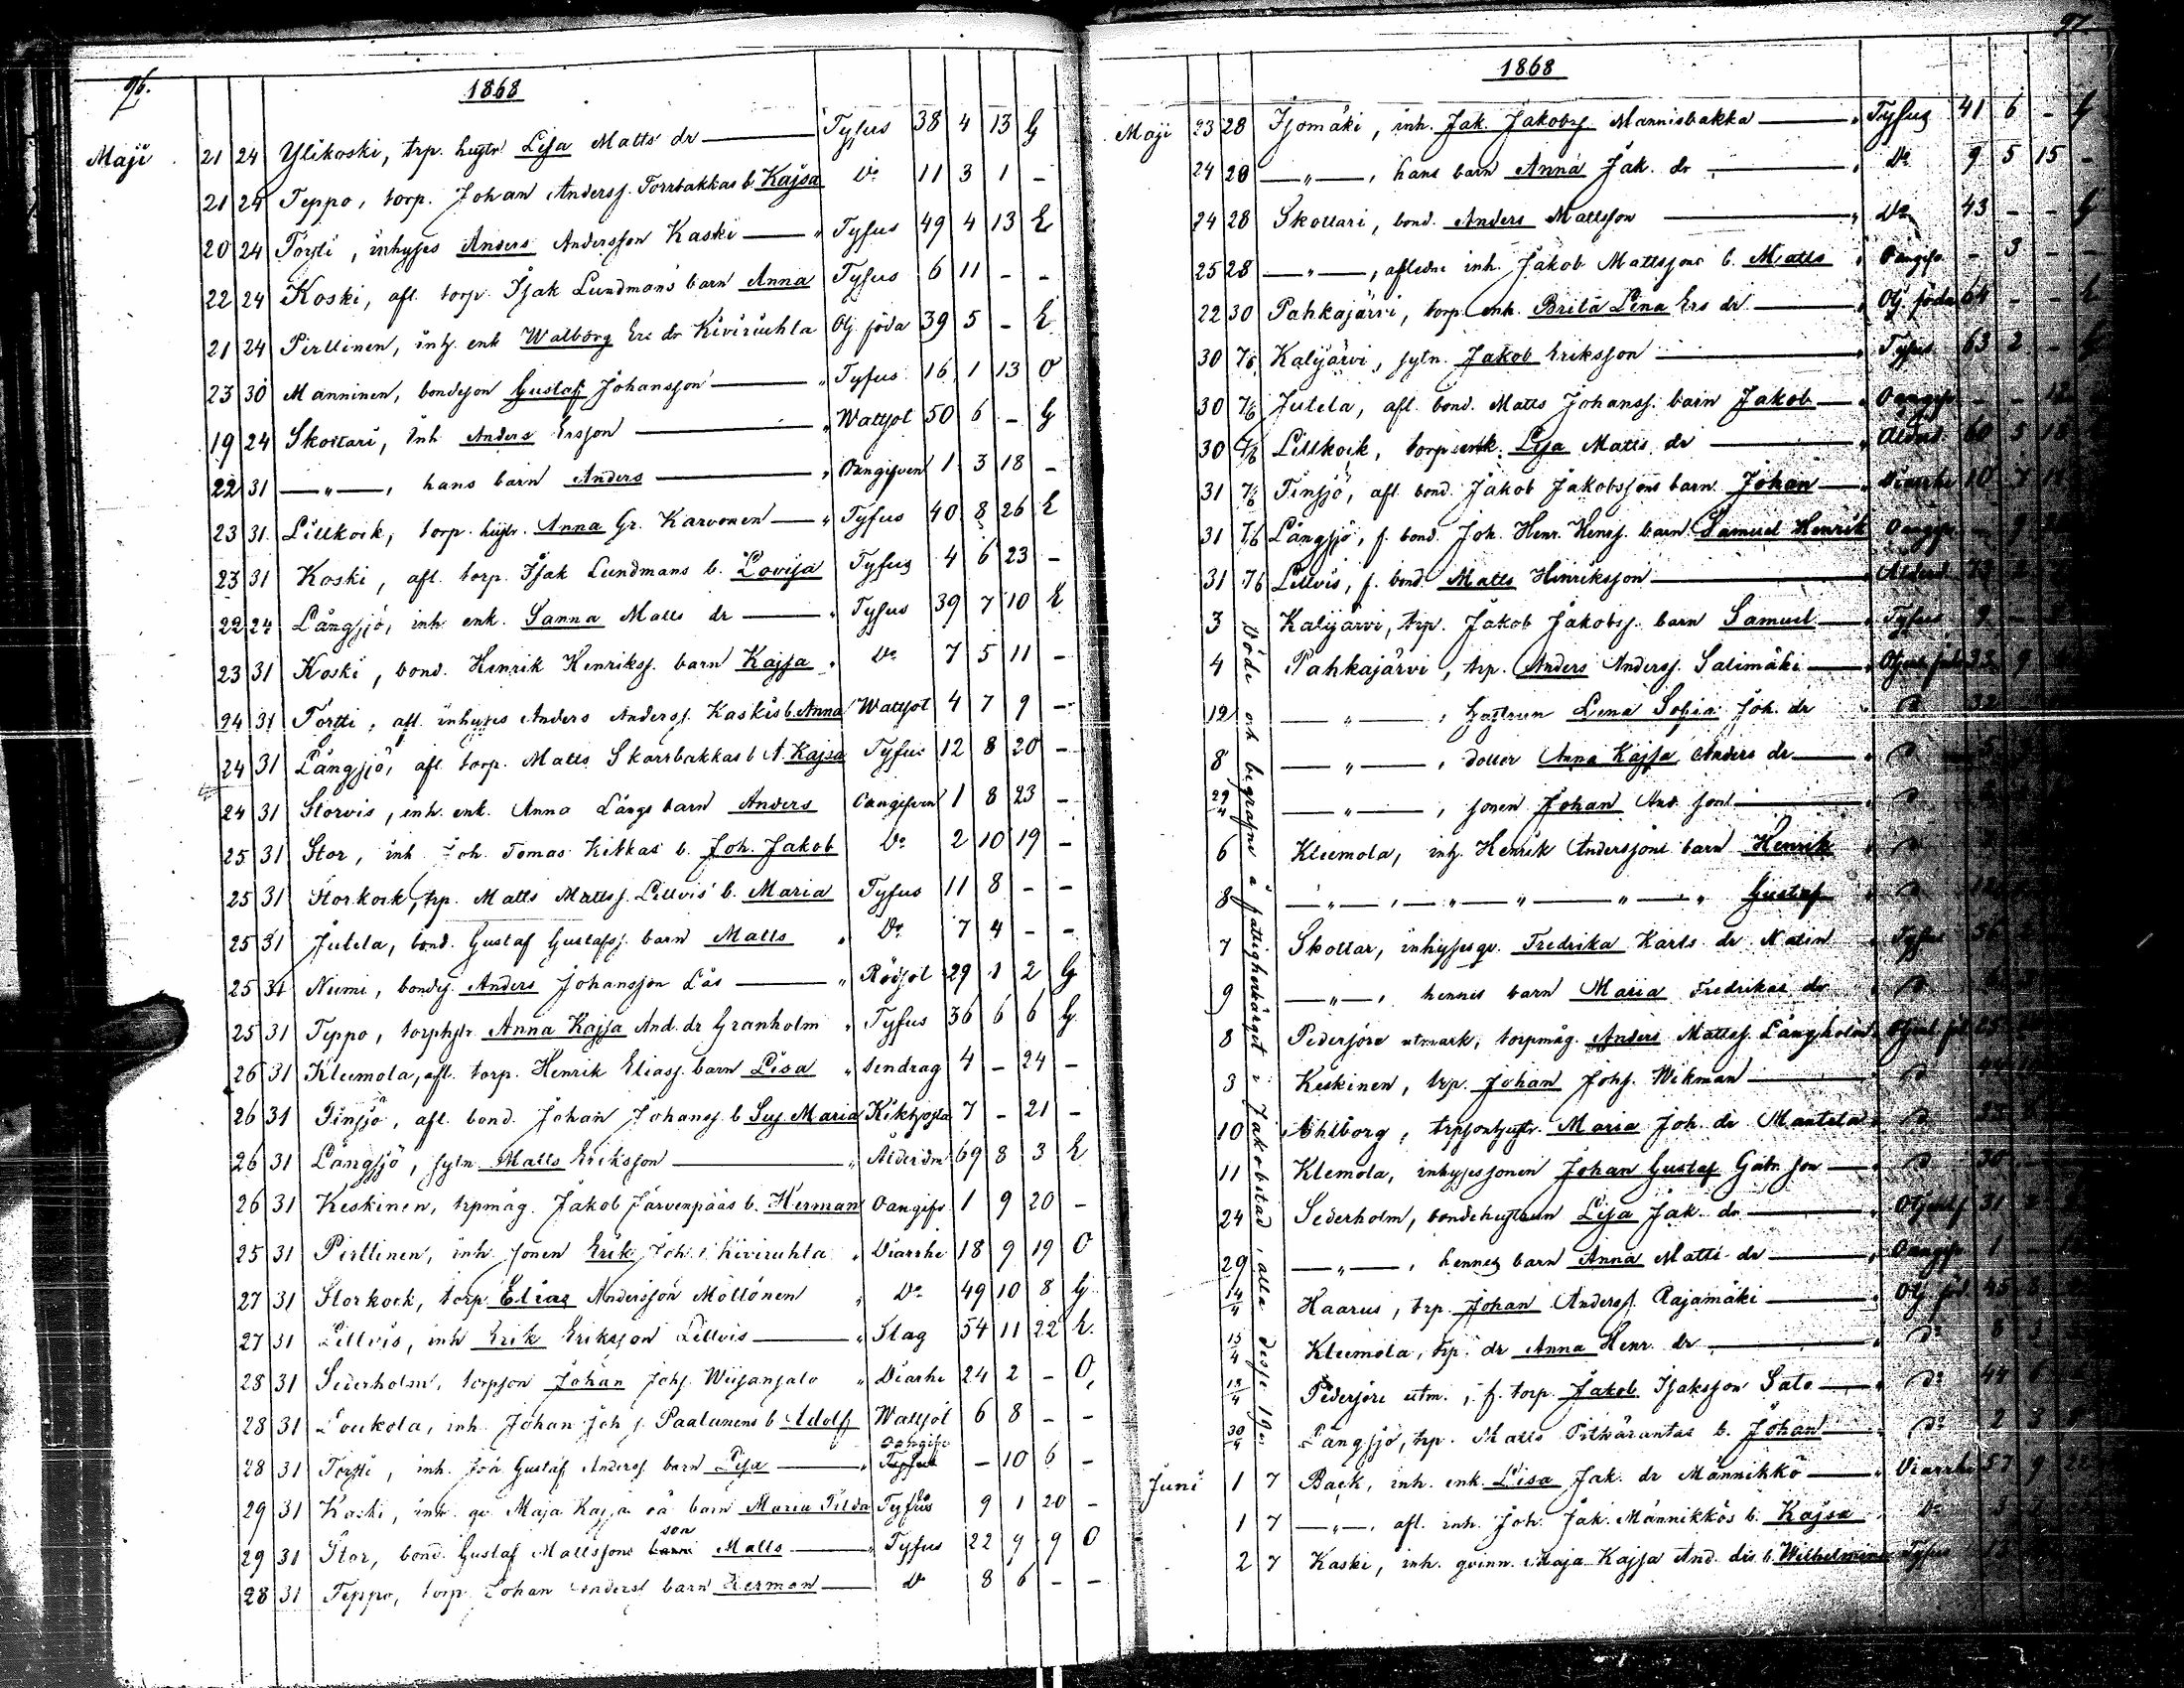 96.
1868
Maji 21 24 Ylikoski, trp. hustr Lisa Matts dr Tyfus 38 4 13 G
21 24 Teppo, torp. Johan Anderss. Torrbakkas b. Kajsa Do 11 3 1 -
20 24 Torsti, inhyses Anders Andersson Kaski " Tyfus 49 4 13 E
22 24 Koski, afl. torp. Isak Lundmans barn Anna Tyfus 6 11 - -
21 24 Pirttinen, inh. enk Walborg Eri dr Kiviruhta Olj. föda 39 5 - E
23 30 Manninen, bondeson Gustaf Johansson " Tyfus 16 1 13 O
19 24 Skottari, Inh Anders Ersson " Wattsot 50 6 - G
22 31 — " —, hans barn Anders " Oangifven 1 3 18 -
23 31 Lillkock, torp. hustr. Anna Gr. Karvonen " Tyfus 40 8 26 E
23 31 Koski, afl. torp. Isak Lundmans b. Lovisa Tyfus 4 6 23 -
22 24 Långsjö, inh. enk. Sanna Matts dr " Tyfus 39 7 10 E
23 31 Koski, bond. Henrik Henrikss. barn Kajsa " Do 7 5 11 -
24 31 Torsti, afl. inhyses Anders Anderss. Kaskis b. Anna Wattsot 4 7 9 -
24 31 Långsjö, afl torp. Matts Skarrbakkas b A. Kajsa Tyfus 12 8 20 -
24 31 Storvis, inh. enk. Anna Långs barn Anders Oangifven 1 8 23 -
25 31 Stor, inh Joh. Tomas Kitkas b. Joh. Jakob Do 2 10 19 -
25 31 Storkock, trp. Matts Mattss. Lillvis b. Maria Tyfus 11 8 - -
25 31 Jutela, bond. Gustaf Gustafss. barn Matts " Do 7 4 - -
25 31 Niemi, bondes. Anders Johansson Lås " Rödsot 29 1 2 G
25 31 Teppo, torphstr Anna Kajsa And. dr Granholm " Tyfus 36 6 6 G
26 31 Kleemola, afl. torp. Henrik Eliass. barn Lisa " Sendrag 4 - 24 -
26 31 Finsjö, afl. bond. Johan Johanss. b Sus. Maria Kikhosta 7 - 21 -
26 31 Långsjö, sytn. Matts Eriksson " Ålderdm 69 8 3 E
26 31 Keskinen, trpmåg. Jakob Järvenpääs b. Herman Oangifv 1 9 20 -
25 31 Pirttinen, inh. sonen Erik Joh. s Kiviruhta " Diarrhe 18 9 19 O
27 31 Storkock, torp Elias Andersson Möttönen " Do 49 10 8 G
27 31 Lillvis, inh Erik Eriksson Lillvis " Slag 54 11 22 E.
28 31 Sederholm, torpson Johan Johs. Wiisansalo " Diarhe 24 2 - O,
28 31 Louckola, inh. Johan Joh s. Paalanens b Adolf Wattsot 6 8 - -
28 31 Torsti, inh. Joh Gustaf Anderss barn Lisa " Oangifv - 10 6 -
29 31 Kaski, inh. qv Maja Kajsa oä barn Maria Tilda Tyfus 9 1 20 -
29 31 Stor, bond. Gustaf Mattssons son Matts " Tyfus 22 9 9 O
28 31 Teppo, torp. Johan Anderss barn Herman Do 8 6 - -
97
1868
Maji 23 28 Isomäki, inh. Jak. Jakobss. Mannisbakka Tyfus 41 6 - G
24 28 — " —, hans barn Anna Jak. dr " Do 9 5 15 -
24 28 Skottari, bond. Anders Mattsson " Do 43 - - G
25 28 — " —, afledne inh. Jakob Mattssons b. Matts " Oangifv. - 3 - -
22 30 Pahkajärvi, torp. enk. Brita Lena Ers dr " Olj. föda 64 - - E
30 7/6 Kalijärvi, sytn. Jakob Eriksson " Tyfus 63 2 - G
30 7/6 Jutela, afl. bond. Matts Johanss. barn Jakob " Oangifv - - 12
30 7/6 Lillkock, torp. enk. Lisa Matts dr " Ålderd. 60 5 18
31 7/6 Finsjö, afl. bond. Jakob Jakobssons barn Johan " Diarrhe 10 7
31 7/6 Långsjö, f. bond. Joh. Henr. Henrs. barn Samuel Henrik Oangifv - 9
31 7/6 Lillvis, f. bond. Matts Hinriksson Ålderd.
3 Kalijärvi, trp. Jakob Jakobss. barn Samuel " Tyfus 9 -
4 Pahkajärvi, trp. Anders Anderss. Salimäki " 33 9
12 — " —, hustrun Lena Sofia Joh. dr " D 32
8 — " —, dotter Anna Kajsa Anders dr " D 5
29/4 — " —, sonen Johan And. son " D
6 Kleemola, inh. Henrik Anderssons barn Henrik " D
8 — " — " — " — " Gustaf " D 12
7 Skottar, inhyses qv. Fredrika Karls dr Nalin " Tyfus 56
9 — " —, hennes barn Maria Fredrikas dr " D
8 Pedersöre utmark, torpmåg. Anders Mattss. Långholm
3 Keskinen, trp. Johan Johs. Wikman " D
10 Ahlborg, trpsonhustr. Maria Joh. dr Mantela " D
11 Klemola, inhysessonen Johan Gustaf son " D 30
24 Sederholm, bondehustrun Lisa Jak. dr " 31
29 — " —, hennes barn Anna Matts dr " Oangifv 1
14/4 Haarus, trp. Johan Anderss. Rajamäki " Olj föd. 45 8
15/4 Kleemola, trp. dr Anna Henr. dr " Do 8 3
13/4 Pedersöre utm., f. torp. Jakob Isaksson Salo " Do 44 6
30/4 Långsjö, trp. Matts Pitkärantas b. Johan " Do 2 3
Döde och begrafne å fattighusbärget i Jakobstad, alla dessa 19.
Juni 1 7 Back, inh. enk. Lisa Jak. dr Männikkö " Diarrhe 57 9
1 7 — " —, afl. inh. Joh. Jak. Männikkös b. Kajsa Do 3
2 7 Kaski, inh. qvinn. Maja Kajsa And. drs b. Wilhelmina Tyfus